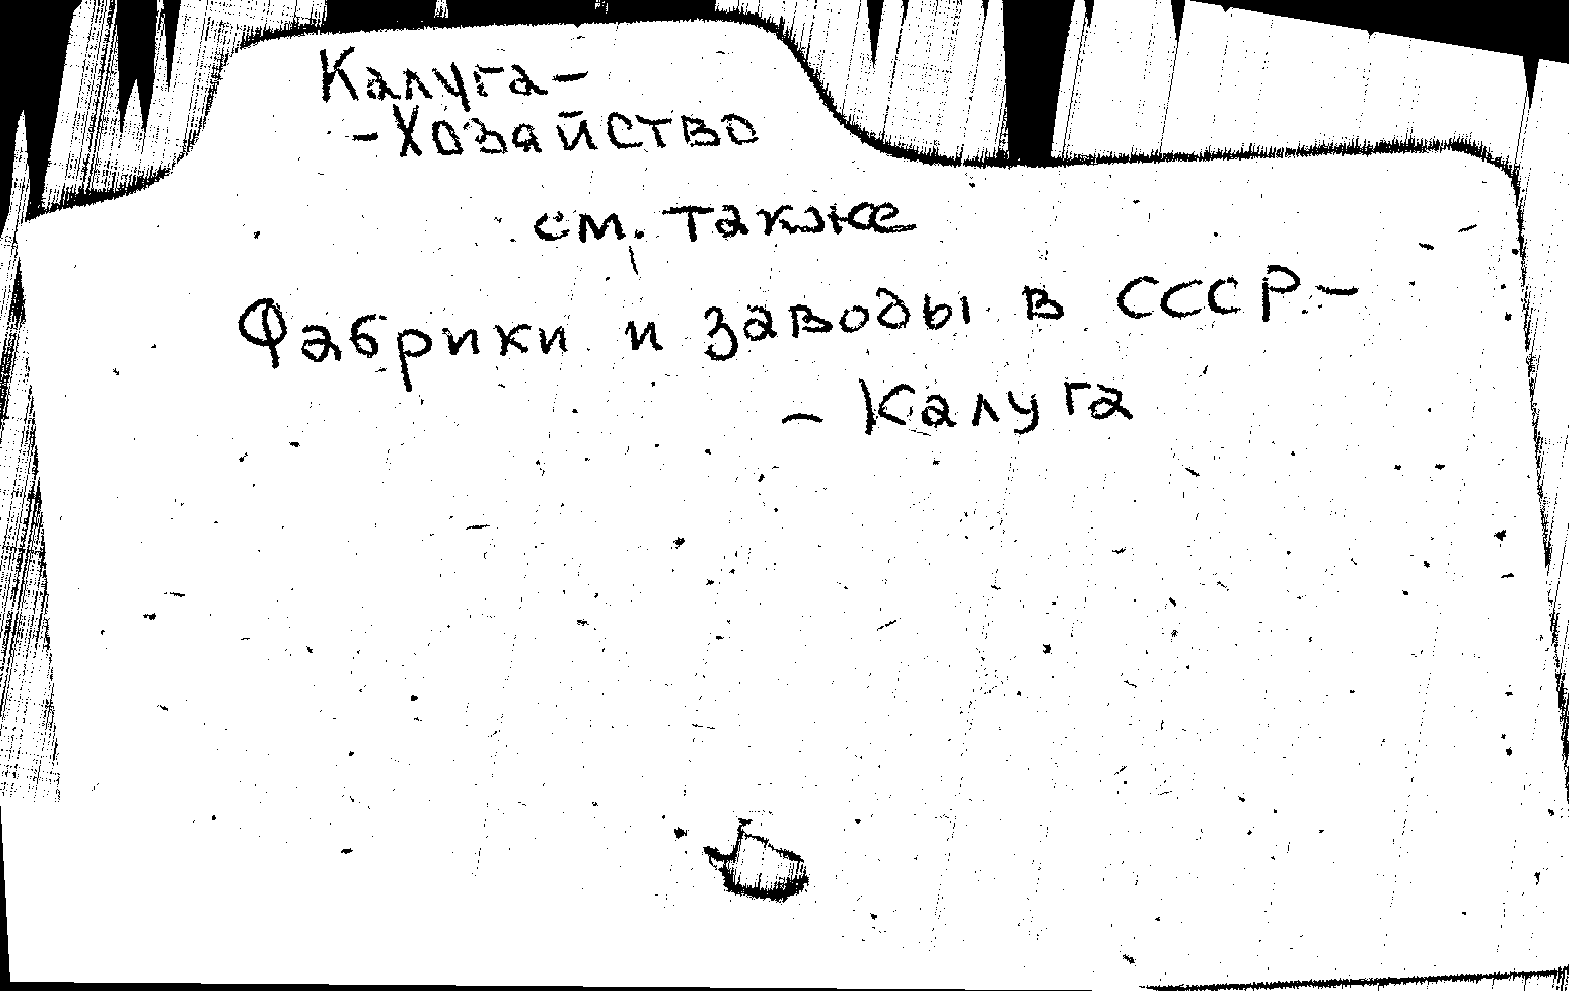 Калуга-
-Хозяйство
см. также
Фабрики и заводы в СССР-
- Калуга